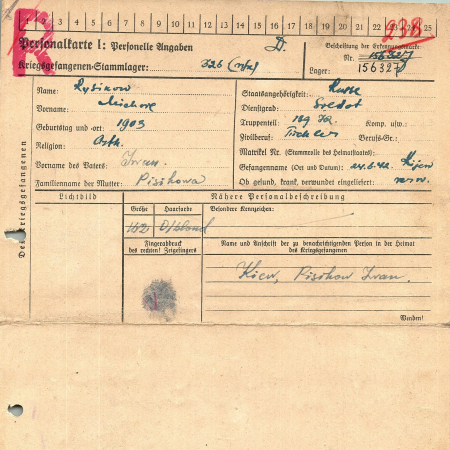 1 2 3 4 5 6 7 8 9 10 11 12 13 14 15 16 17 18 19 20 21 22 23 24 25
R 238
Personalkarte I: Personelle Angaben
D.
Beschriftung der Erkennungsmarke
Kriegsgefangenen-Stammlager: 326 (VI/K)
Nr. 156327
Lager: 156327
Des Kriegsgefangenen
Name: Rysikow
Vorname: Michael
Geburtstag und -ort: 1903
Religion: Orth.
Vorname des Vaters: Iwan.
Familienname der Mutter: Pisikowa
Staatsangehörigkeit: Russe
Dienstgrad: Soldat
Truppenteil: 189 Komp. usw.:
Zivilberuf: Tischler Berufs-Gr.:
Matrikel Nr. (Stammrolle des Heimatstaates):
Gefangennahme (Ort und Datum): Kijew
Ob gesund, krank, verwundet eingeliefert:
Lichtbild
Nähere Personalbeschreibung
Größe Haarfarbe Besondere Kennzeichen:
162 D/blond
Fingerabdruck
des rechten! Zeigefingers
Name und Anschrift der zu benachrichtigenden Person in der Heimat
des Kriegsgefangenen
Kiew, Pisikow Iwan.
Wenden!